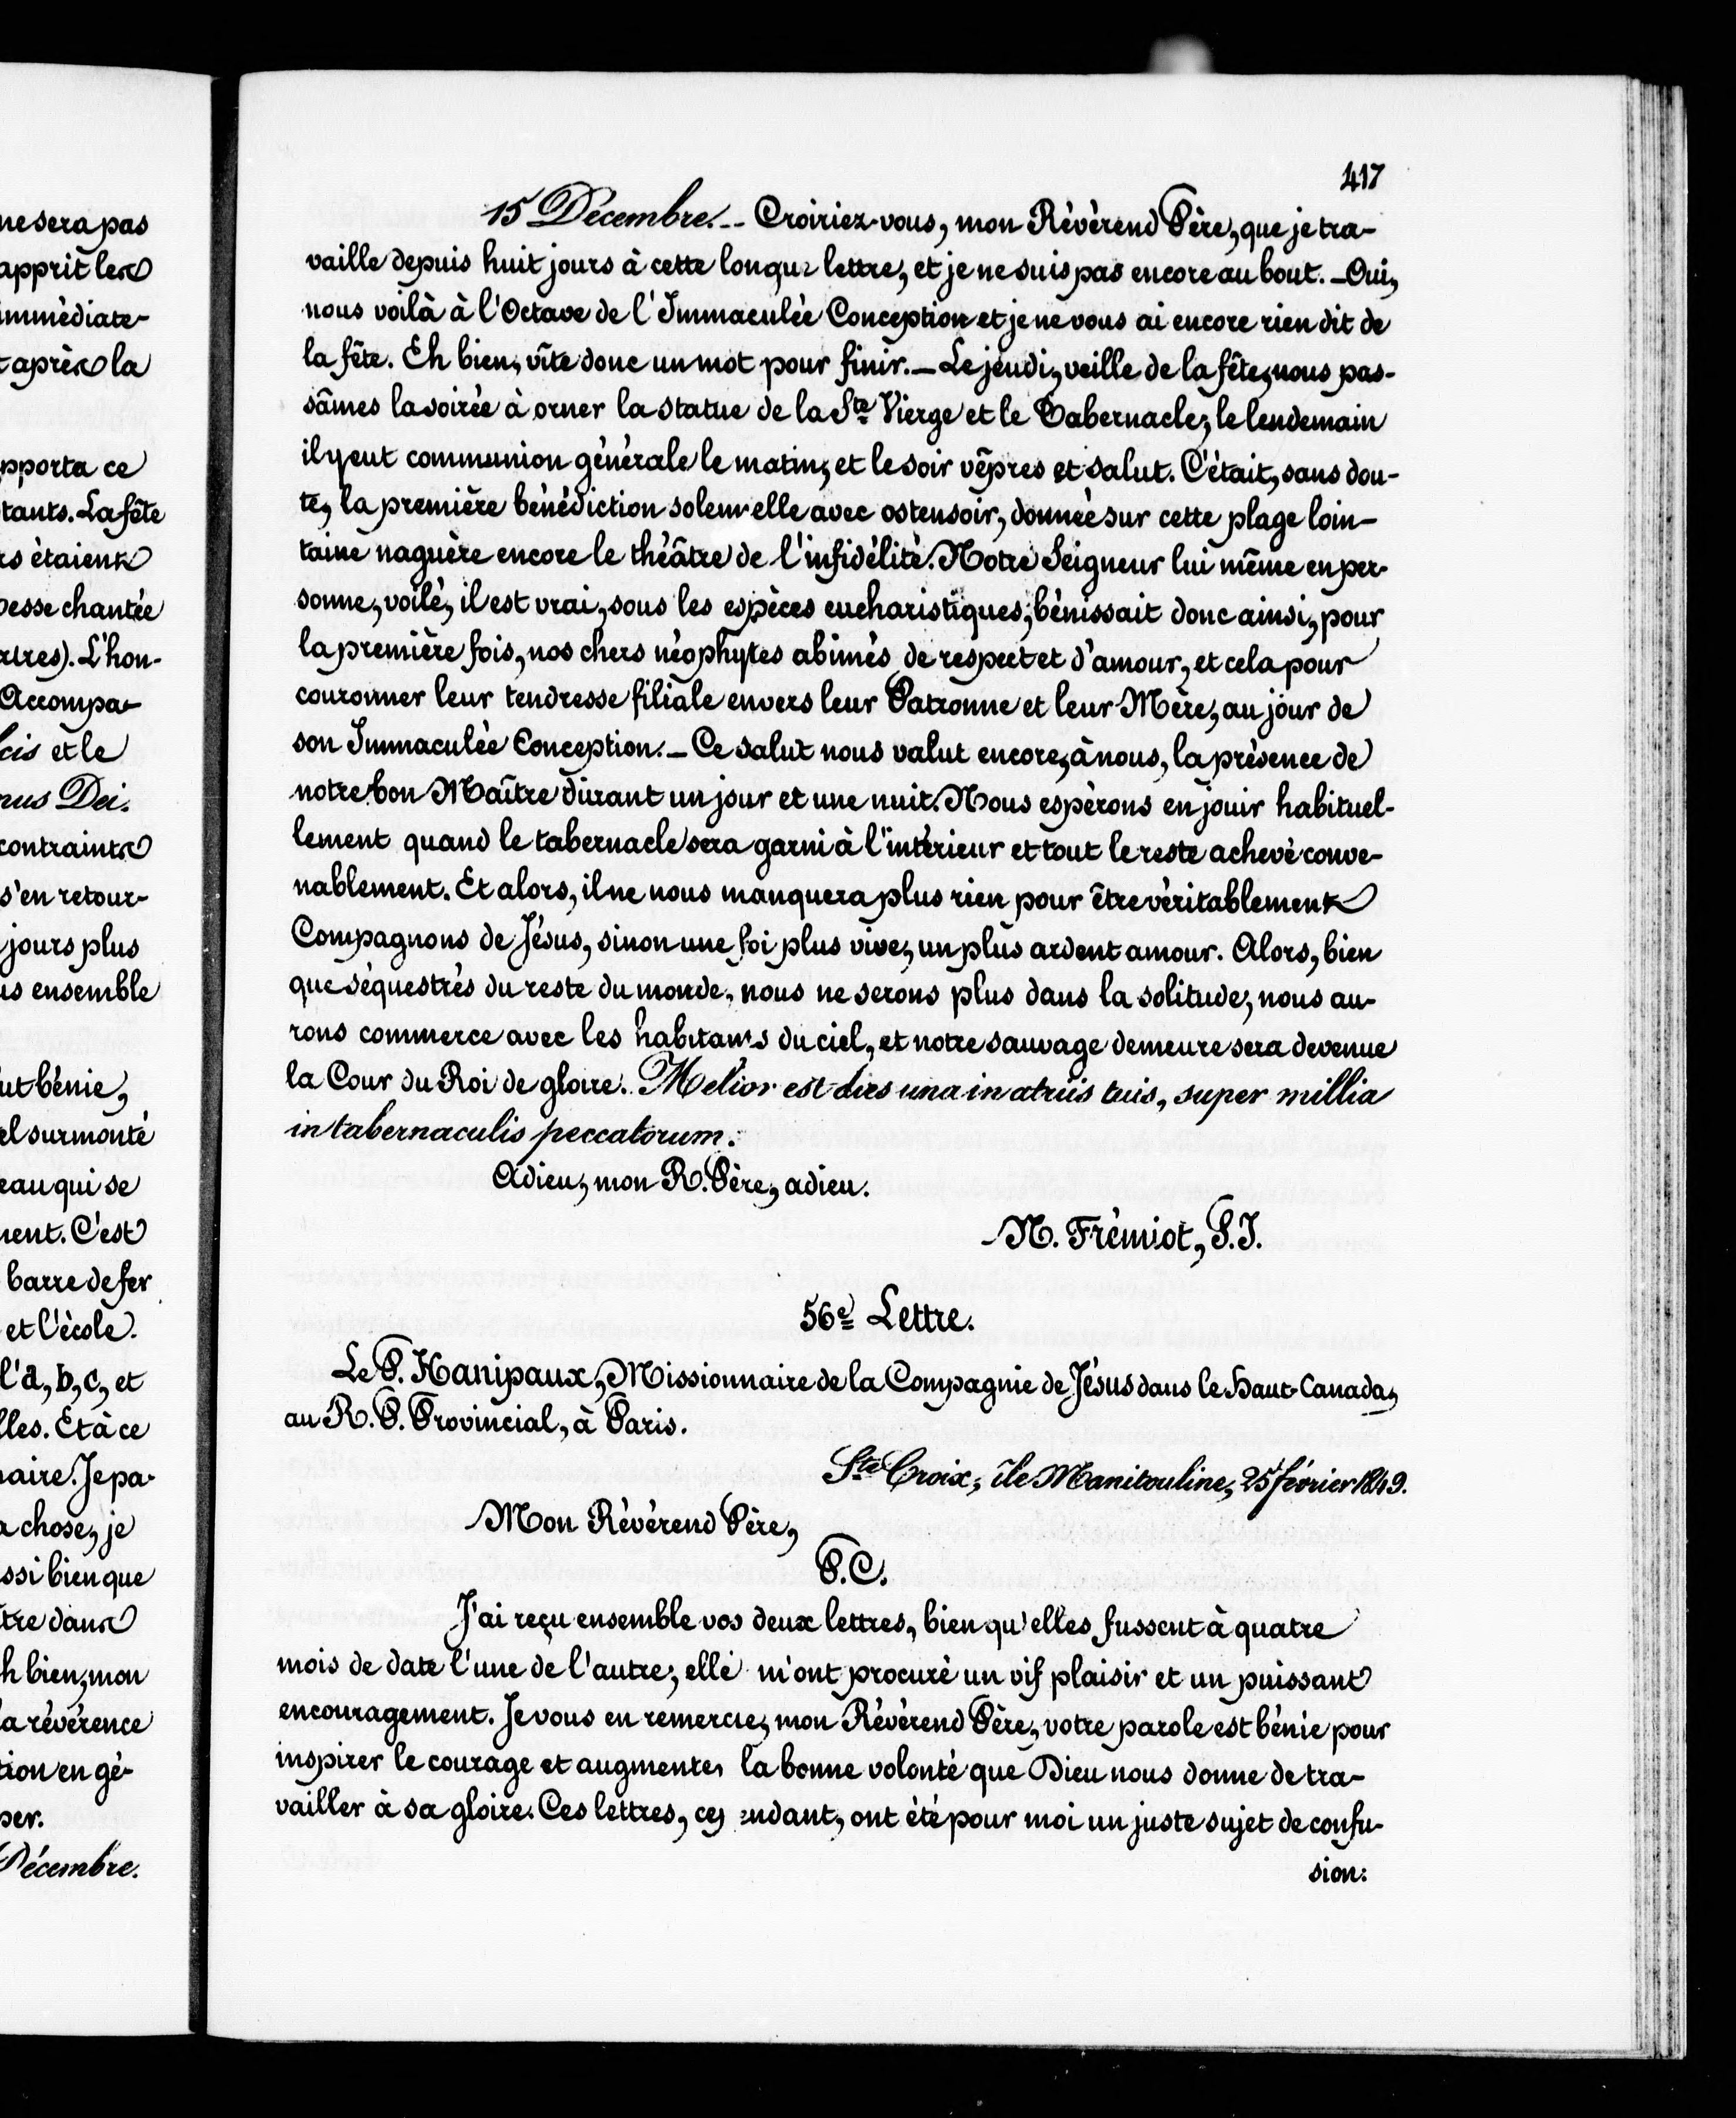 ne sera pas
apprit les
immédiate-
après la
pporta ce
tants. La fête
rs étaient
esse chantée
tres). L'hon-
Accompa-
cis et le
nus Dei.
contraints
s'en retour-
jours plus
us ensemble
ut bénie,
el surmonté
eau qui se
ment. C'est
barre de fer
et l'école.
l'a, b, c, et
lles. Et à ce
naire. Je pa-
a chose, je
ssi bien que
tre dans
h bien, mon
la révérence
tion en gé-
per.
Décembre.
417
15 Décembre. -- Croiriez-vous, mon Révérend Père, que je tra-
vaille depuis huit jours à cette longue lettre, et je ne suis pas encore au bout. - Oui,
nous voilà à l'Octave de l'Immaculée Conception et je ne vous ai encore rien dit de
la fête. Eh bien, vîte donc un mot pour finir. - Le jeudi, veille de la fête, nous pas-
sâmes la soirée à orner la statue de la Ste Vierge et le Tabernacle; le lendemain
il y eut communion générale le matin, et le soir vêpres et salut. C'était, sans dou-
te, la première bénédiction solennelle avec ostensoir, donnée sur cette plage loin-
taine naguère encore le théâtre de l'infidélité. Notre Seigneur lui même en per-
sonne, voilé, il est vrai, sous les espèces eucharistiques, bénissait donc ainsi, pour
la première fois, nos chers néophytes abimés de respect et d'amour, et cela pour
couronner leur tendresse filiale envers leur Patronne et leur Mère, au jour de
son Immaculée Conception. - Ce salut nous valut encore, à nous, la présence de
notre bon Maître durant un jour et une nuit. Nous espérons en jouir habituel-
lement quand le tabernacle sera garni à l'intérieur et tout le reste achevé conve-
nablement. Et alors, il ne nous manquera plus rien pour être véritablement
Compagnons de Jésus, sinon une foi plus vive, un plus ardent amour. Alors, bien
que séquestrés du reste du monde, nous ne serons plus dans la solitude, nous au-
rons commerce avec les habitants du ciel, et notre sauvage demeure sera devenue
la Cour du Roi de gloire. Melior est dies una in atriis tuis, super millia
in tabernaculis peccatorum.
Adieu, mon R. Père, adieu.
N. Frémiot, S.J.
56e Lettre.
Le P. Hanipaux, Missionnaire de la Compagnie de Jésus dans le Haut-Canada,
au R. P. Provincial, à Paris.
Ste Croix, île Manitouline, 25 février 1849.
Mon Révérend Père,
P.C.
J'ai reçu ensemble vos deux lettres, bien qu'elles fussent à quatre
mois de date l'une de l'autre; elle m'ont procuré un vif plaisir et un puissant
encouragement. Je vous en remercie, mon Révérend Père, votre parole est bénie pour
inspirer le courage et augmenter la bonne volonté que Dieu nous donne de tra-
vailler à sa gloire. Ces lettres, cependant, ont été pour moi un juste sujet de confu-
sion: